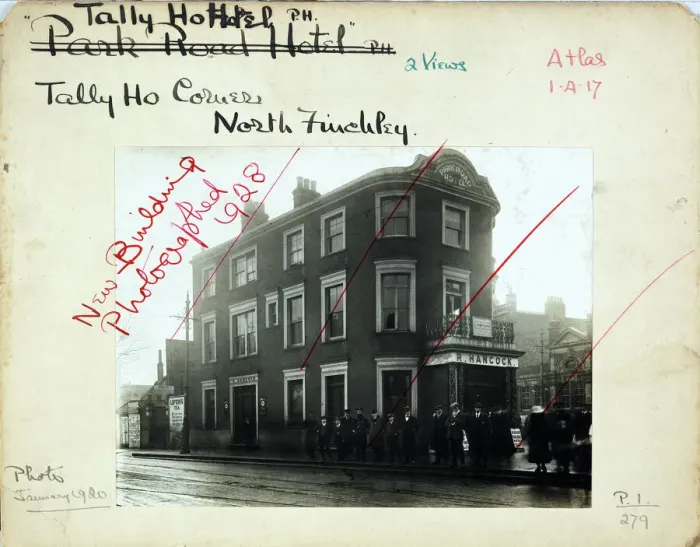 "Tally Ho Hotel P.H.
Park Road Hotel" P.H.
2 Views
Atlas
1·A·17
Tally Ho Corner,
North Finchley.
New Building
Photographed
1928
PARK ROAD
HOTEL
R. HANCOCK.
R. HANCOCK
LIPTON'S
TEA
Photo
January 1920
P. 1.
279